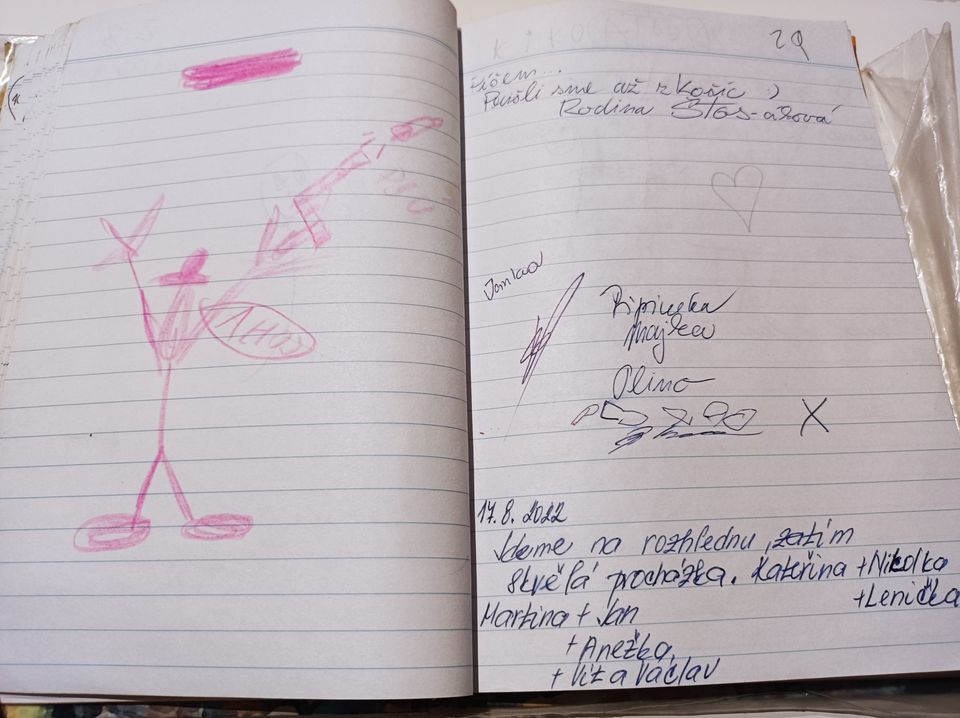 1. HOS
29
Ičem...
Prišli sme až z Košíc :)
Rodina Stas-áková
Janka
Pipinka
Majka
Olina
X
17.8.2022
Jdeme na rozhlednu, zatím
skvělá procházka. Kateřina + Nikolka
+ Lenička
Martina + Jan
+ Anežka,
+ Víťa Václav